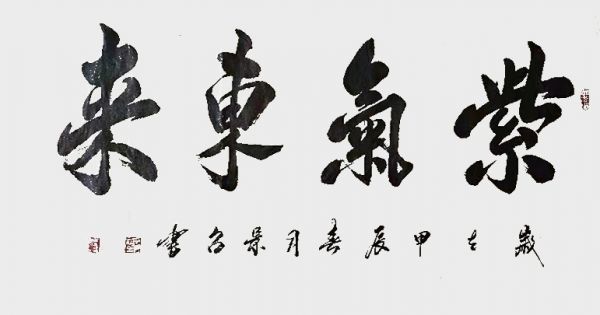 紫氣東来
歲在甲辰春月景書